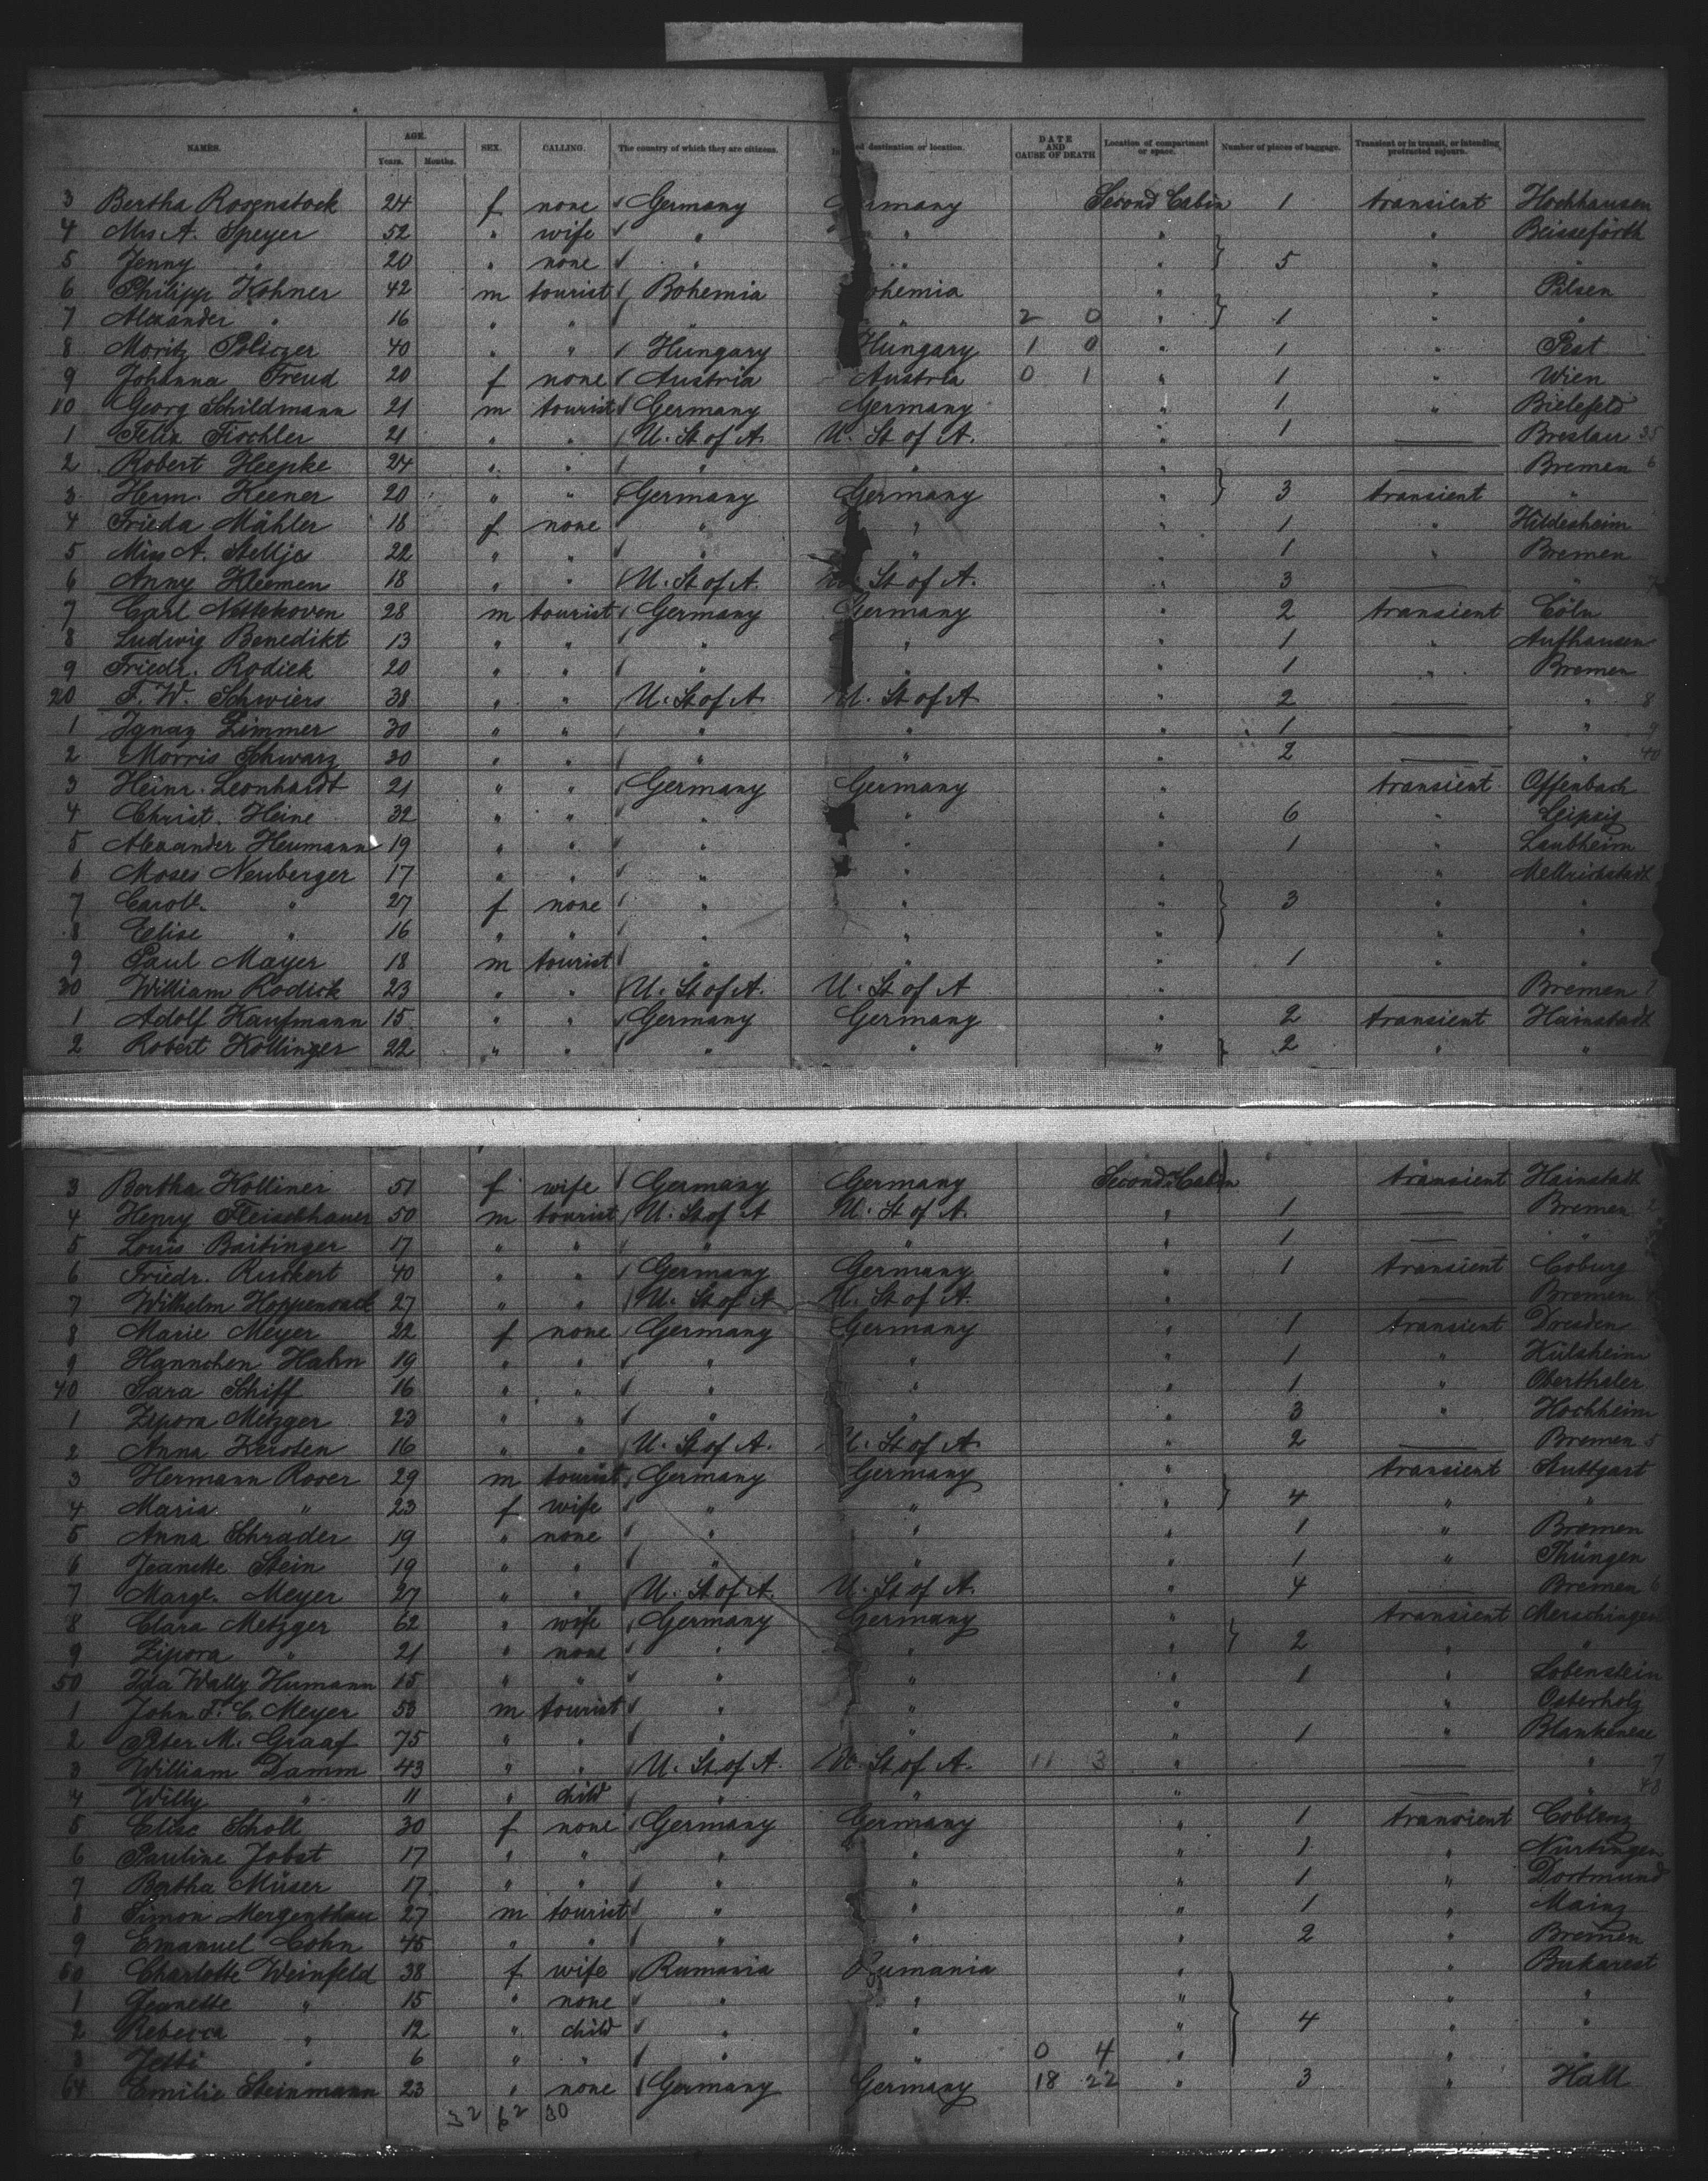 NAMES. AGE. Years. Months. SEX. CALLING. The country of which they are citizens. destination or location. DATE AND CAUSE OF DEATH Location of compartment or space. Number of pieces of baggage. Transient or in transit, or intending protracted sojourn.
3 Bertha Rosenstock 24 f none Germany many Second Cabin 1 transient Hochhausen
4 Mrs A. Speyer 52 " wife " " " " Beisseförth
5 Jenny " 20 " none " " " } 5 " "
6 Philipp Kohner 42 m tourist Bohemia ohemia " " Pilsen
7 Alexander " 16 " " " " 2 0 " } 1 " "
8 Moritz Politzer 40 " " Hungary Hungary 1 0 " 1 " Pest
9 Johanna Freud 20 f none Austria Austria 0 1 " 1 " Wien
10 Georg Schildmann 21 m tourist Germany Germany " 1 " Bielefeld
1 Felix Fischler 21 " " U. St of A. U. St of A. " 1 — Breslau 35
2 Robert Heepke 24 " " " " " — Bremen 6
3 Herm. Keener 20 " " Germany Germany " } 3 transient "
4 Frieda Mähler 18 f none " " " 1 " Hildesheim
5 Miss A. Stellje 22 " " " " " 1 " Bremen
6 Anny Kleemen 18 " " U. St of A. St of A. " 3 — " 7
7 Carl Nettekoven 28 m tourist Germany Germany " 2 transient Cöln
8 Ludwig Benedikt 13 " " " " " 1 " Aufhausen
9 Friedr. Rodiek 20 " " " " " 1 " Bremen
20 F. W. Schwiers 38 " " U. St of A U. St of A " 2 — " 8
1 Ignaz Zimmer 30 " " " " " 1 — " 9
2 Morris Schwarz 30 " " " " " 2 — " 40
3 Heinr. Leonhardt 21 " " Germany Germany " transient Offenbach
4 Christ. Heine 32 " " " " " 6 " Leipzig
5 Alexander Heumann 19 " " " " " 1 " Laubheim
6 Moses Neuberger 17 " " " " " " Mellrichstadt
7 Carol. " 27 f none " " " } 3 " "
8 Elise " 16 " " " " " " "
9 Paul Mayer 18 m tourist " " " 1 " "
30 William Rodick 23 " " U. St of A. U. St of A " — Bremen 1
1 Adolf Kaufmann 15 " " Germany Germany " 2 transient Hainstadt
2 Robert Kollinger 22 " " " " " } 2 " "
3 Bertha Kolliner 51 f wife Germany Germany Second Cabin transient Hainstadt
4 Henry Fleischhauer 50 m tourist U. St of A U. St of A. " 1 — Bremen 2
5 Louis Baitinger 17 " " " " " 1 — "
6 Friedr. Ruckert 40 " " Germany Germany " 1 transient Coburg
7 Wilhelm Hoppensack 27 " " U. St of A U. St of A. " — Bremen
8 Marie Meyer 22 f none Germany Germany " 1 transient Dresden
9 Hannchen Hahn 19 " " " " " 1 " Külsheim
40 Sara Schiff 16 " " " " " 1 " Oberthaler
1 Zipora Metzger 23 " " " " " 3 " Hochheim
2 Anna Kersten 16 " " U. St of A. U. St of A. " 2 — Bremen 5
3 Hermann Rover 29 m tourist Germany Germany " transient Stuttgart
4 Maria " 23 f wife " " " } 4 " "
5 Anna Schrader 19 " none " " " 1 " Bremen
6 Jeanette Stein 19 " " " " " 1 " Thüngen
7 Margr. Meyer 27 " " U. St of A. U. St of A. " 4 — Bremen 6
8 Clara Metzger 62 " wife Germany Germany " transient Merchingen
9 Zipora " 21 " none " " " } 2 " "
50 Ida Wally Humann 15 " " " " " 1 " Lobenstein
1 John F. C. Meyer 53 m tourist " " " " Osterholz
2 Peter M. Graaf 75 " " " " " 1 " Blankenese
3 William Damm 43 " " U. St of A. U. St of A. 11 3 " — " 7
4 Willy " 11 " child " " " — " 48
5 Elise Scholl 30 f none Germany Germany " 1 transient Coblenz
6 Pauline Jobst 17 " " " " " 1 " Nürtingen
7 Bertha Müser 17 " " " " " 1 " Dortmund
8 Simon Mergenthau 27 m tourist " " " 1 " Mainz
9 Emanuel Cohn 45 " " " " " 2 " Bremen
60 Charlotte Weinfeld 38 f wife Rumania Rumania " " Bukarest
1 Jeanette " 15 " none " " " " "
2 Rebecca " 12 " child " " " } 4 " "
3 Jetti " 6 " " " " 0 4 " " "
64 Emilie Steinmann 23 " none Germany Germany 18 22 " 3 " Hall
32 62 30